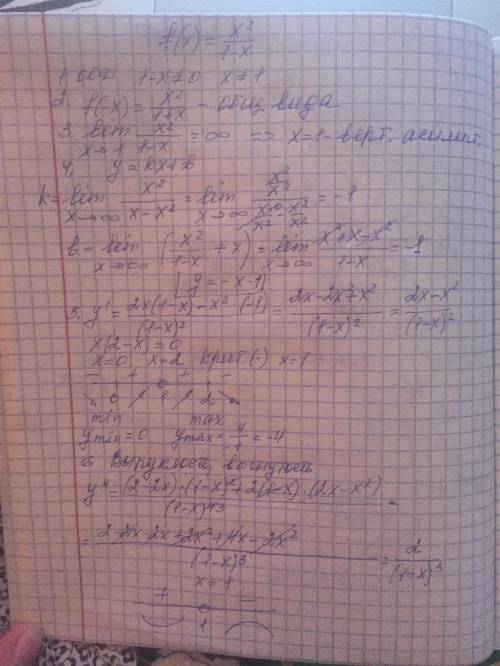 f(x) = x²/(1-x)
1. ООФ 1-x≠0 x≠1
2. f(-x) = x²/(1+x) - общ. вида
3. lim x→1 x²/(1-x) = ∞ => x=1- верт. асимпт.
4. y = kx+b
k = lim x→∞ x²/(x-x²) = lim x→∞ (x²/x²)/(x/x² - x²/x²) = -1
b = lim x→∞ (x²/(1-x) + x) = lim x→∞ (x²+x-x²)/(1-x) = -1
y = -x-1
5. y' = (2x(1-x) - x²·(-1))/(1-x)² = (2x-2x²+x²)/(1-x)² = (2x-x²)/(1-x)²
x(2-x)=0
x=0 x=2 крит.(·) x=1
- + + -
0 1 2
min max
y min=0 y max = 4/-1 = -4
6 Выпуклость, вогнутость
y'' = ((2-2x)·(1-x)²+2(1-x)·(2x-x²))/(1-x)⁴³ =
= (2-2x-2x+2x²+4x-2x²)/(1-x)³ = 2/(1-x)³
x=1
+ -
1